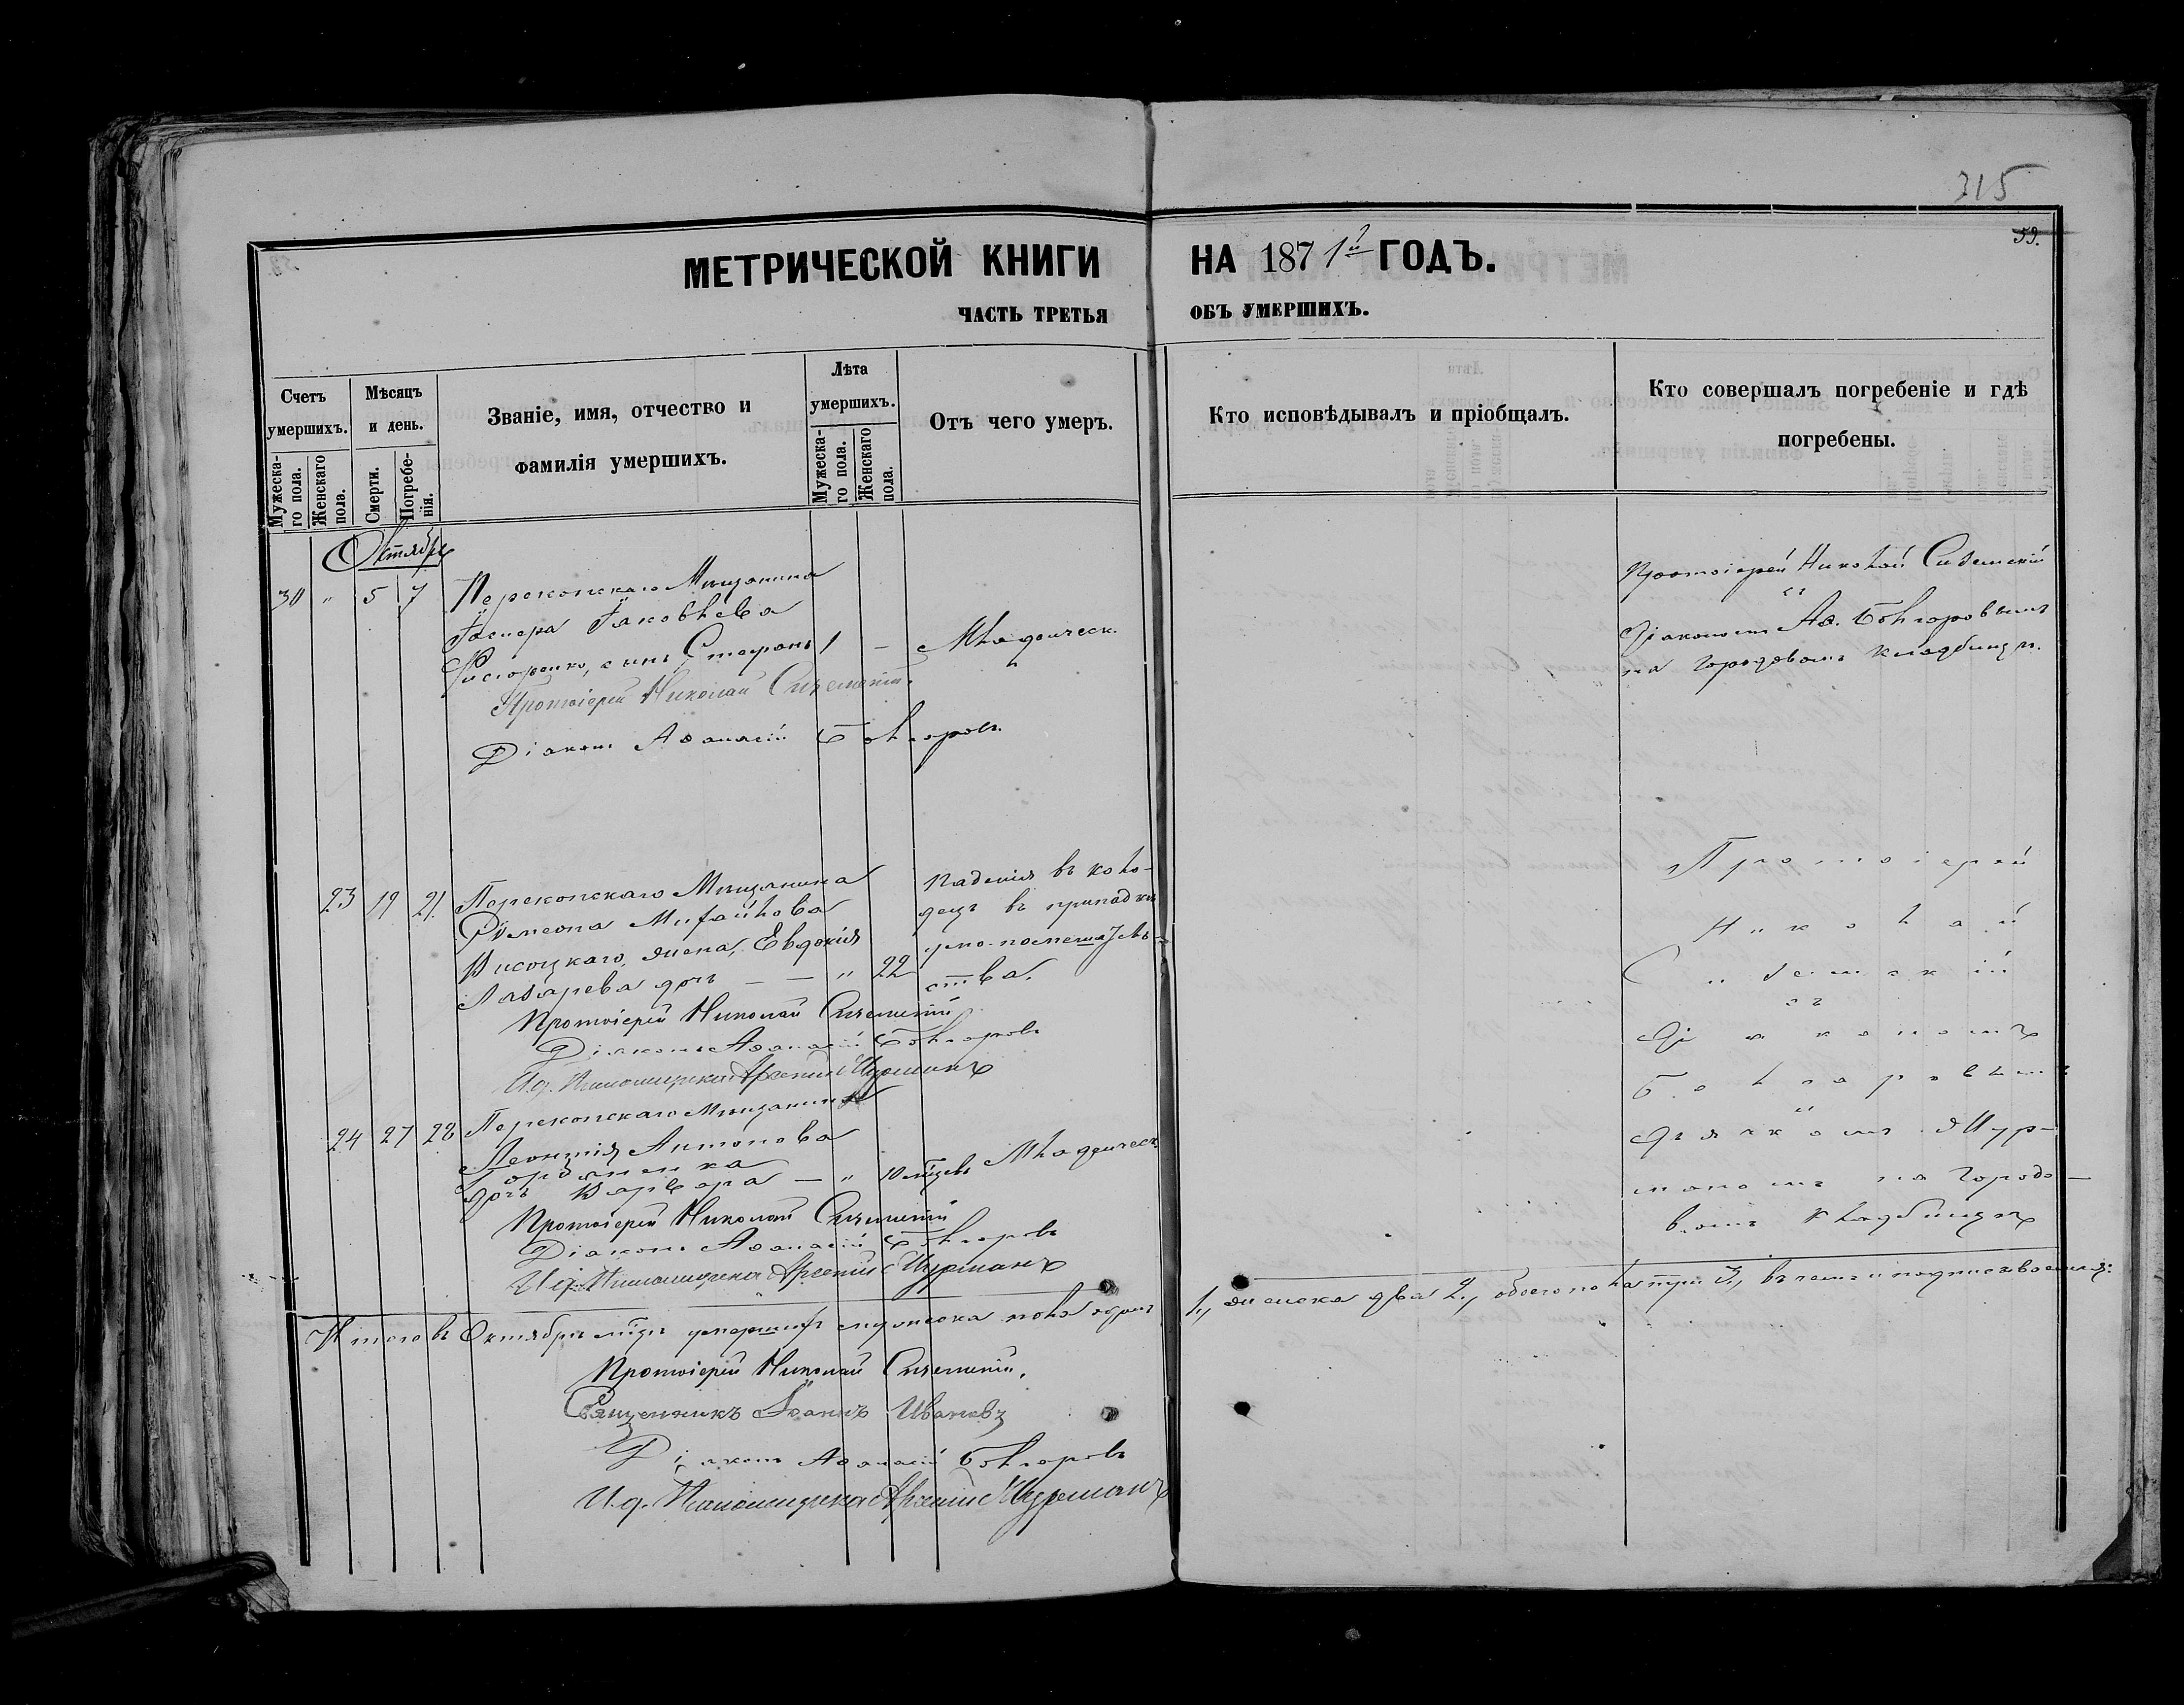 315
59.
МЕТРИЧЕСКОЙ КНИГИ НА 1871й ГОДЪ.
ЧАСТЬ ТРЕТЬЯ ОБЪ УМЕРШИХЪ.
Счетъ умершихъ.
Мужеска-го пола.
Женскаго пола.
Мѣсяцъ и день.
Смерти.
Погребе-нія.
Званіе, имя, отчество и
фамилія умершихъ.
Лѣта умершихъ.
Мужеска-го пола.
Женскаго пола.
Отъ чего умеръ.
Кто исповѣдывалъ и пріобщалъ.
Кто совершалъ погребеніе и гдѣ
погребены.
Октябрь
30 " 5 7 Перекопскаго Мѣщанина
Яковлева
сынъ Стефанъ 1 – Младенческ.
Протоіерей Николай
Діаконъ Аѳанасій Болгаровъ
Протоіерей Николай
съ
Діакономъ Аѳ. Болгаровымъ
на городовомъ кладбищѣ.
23 19 21 Перекопскаго Мѣщанина
Симеона Михайлова
Висоцкаго, жена, Евдокія
Лазарева дочь — " 22
Паденія въ коло-
децъ въ припадкѣ
умо-помешатель-
ства.
Протоіерей Николай
Діаконъ Аѳанасій Болгаровъ
И.д. Пономаря Арсеній Мурманъ
Протоіерей
Николай
съ
Діакономъ
Болгаровымъ
и
Дьячкомъ Мур-
маномъ на Городо-
вомъ кладбищѣ
24 27 28 Перекопскаго Мѣщанина
Леонтія Антонова
дочь Варвара — " 10 мѣцевъ Младенческ
Протоіерей Николай
Діаконъ Аѳанасій Болгаровъ
И.д. Арсеній Мурманъ
Итого въ Октябрѣ мцѣ умершихъ мужеска пола одинъ 1, женска два 2, обоего пола три 3, въ чемъ и подписываемся:
Протоіерей Николай
Священникъ Іоаннъ Иванчевъ
Діаконъ Аѳанасій Болгаровъ
И.д. Арсеній Мурманъ